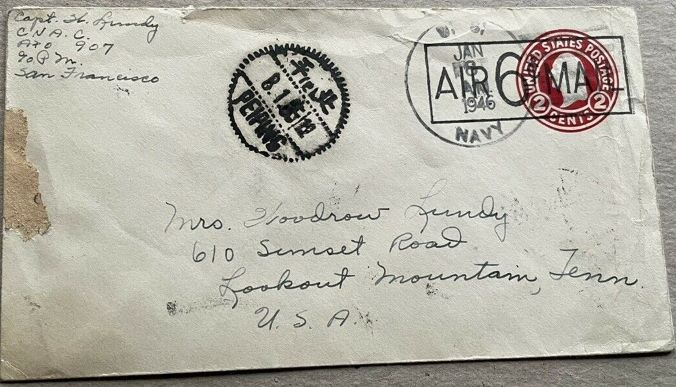 Capt. W. Lundy
C.N.A.C.
APO 907
% P.M.
San Francisco
北平
8.1.35.18
PEIPING
U. S.
JAN
1946
NAVY
AIR 6¢ MAIL
UNITED STATES POSTAGE
2 CENTS 2
Mrs. Woodrow Lundy
610 Sunset Road
Lookout Mountain, Tenn.
U. S. A.